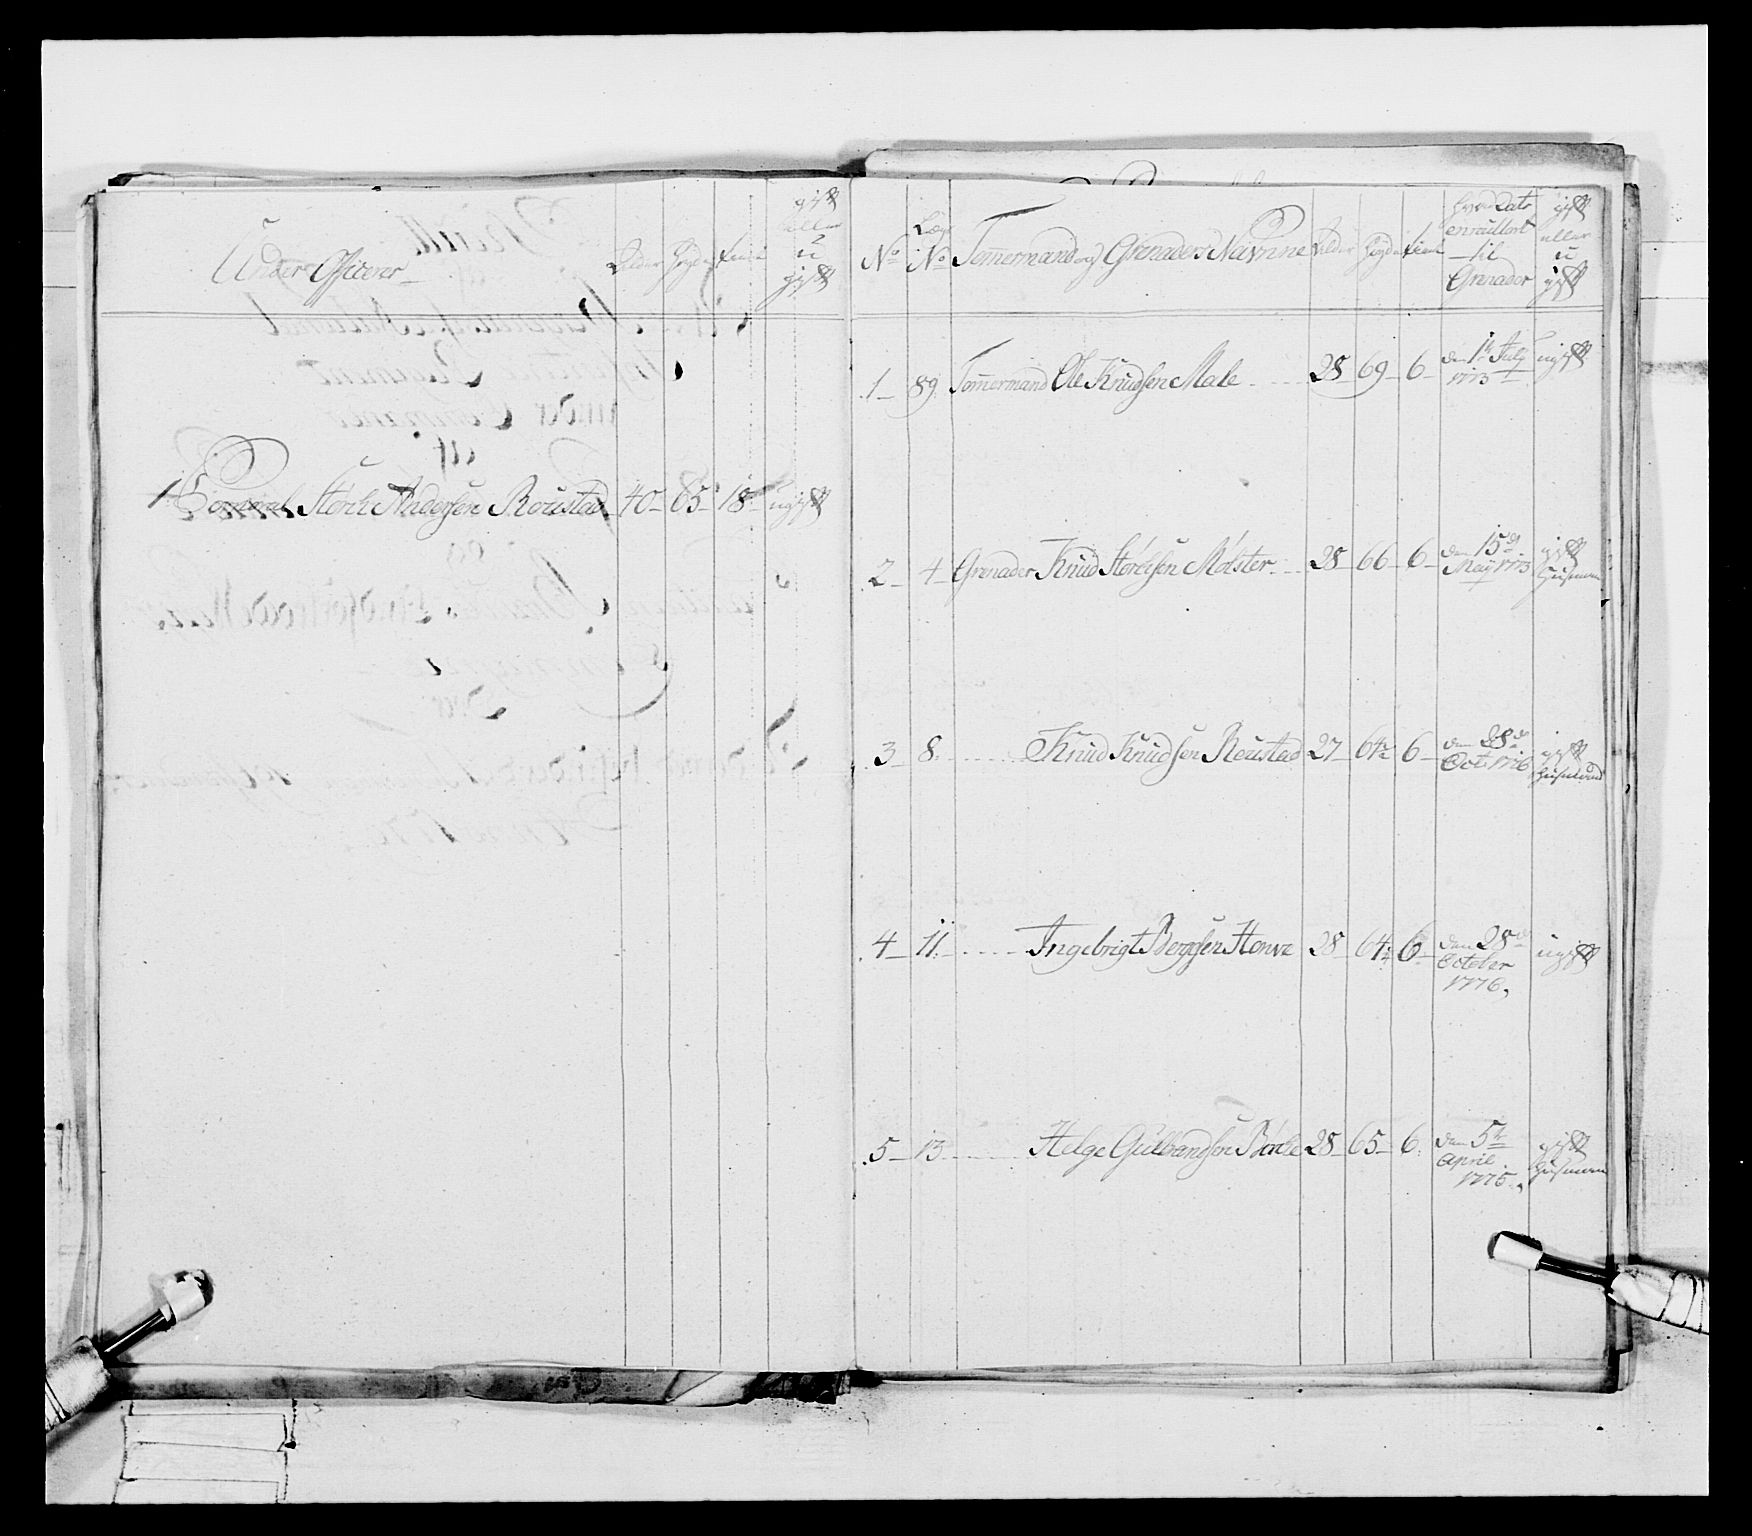 Under Officerer
Alder
Høyde
Tient
gift
eller
u
gift
1 Corporal Størk Andersen Roustad 40 65 18 ugift
No
Læg
No
Tømmermand og Grenaders Navnne
Alder
Høyde
Tient
enroullert
til
Grenader
gift
eller
u
gift
1 89 Tømmermand Ole Knudsen Male 28 69 6 den 1te July 1773 ugift
2 4 Grenader Knud Størcksen Mølster 28 66 6 den 15de May 1773 gift Huusmand
3 8 Knud Knudsen Reustad 27 64½ 6 den 28de Oct 1776 gift Huusmand
4 11 Ingebrigt Bergesen Honve 28 64½ 6 den 28de October 1776 ugift
5 13 Helge Gulbrandsen Børcke 28 65 6 den 5te April 1775 gift Huusmand